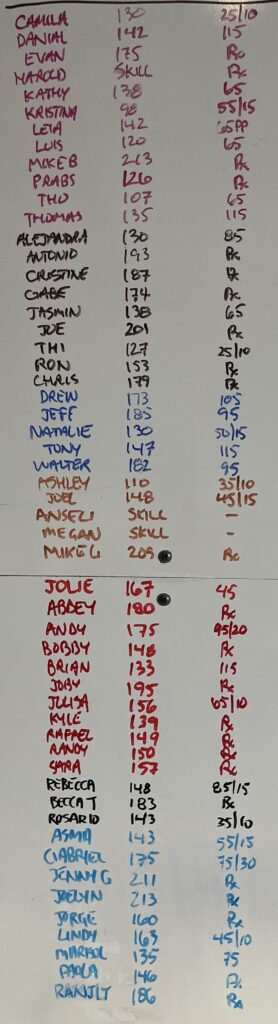 CAMILA 130 25/10
DANIAL 142 115
EVAN 175 Rx
HAROLD SKILL Rx
KATHY 138 65
KRISTINA 98 55/15
LETA 142 65PP
LUIS 120 65
MIKE B 213 Rx
PRABS 126 Rx
THU 107 65
THOMAS 135 115
ALEJANDRA 130 85
ANTONIO 193 Rx
CRISTINE 187 Rx
GABE 174 Rx
JASMIN 138 65
JOE 201 Rx
THI 127 25/10
RON 153 Rx
CHRIS 179 Rx
DREW 173 105
JEFF 185 95
NATALIE 130 50/15
TONY 147 115
WALTER 182 95
ASHLEY 110 35/10
JOEL 148 45/15
ANSELI SKILL -
MEGAN SKILL -
MIKE G 209 Rx
JOLIE 167 45
ABBEY 180 Rx
ANDY 175 95/20
BOBBY 148 Rx
BRIAN 133 115
JOBY 195 Rx
JULISA 156 65/10
KYLE 139 Rx
RAFAEL 149 Rx
RANDY 150 Rx
SARA 157 Rx
REBECCA 148 85/15
BECCA T 183 Rx
ROSARIO 143 35/10
ASMA 143 55/15
GABRIEL 175 75/30
JENNY G 211 Rx
JOELYN 213 Rx
JORGE 160 Rx
LINDY 163 45/10
135 75
PAOLA 146 Rx
RANJIT 186 Rx